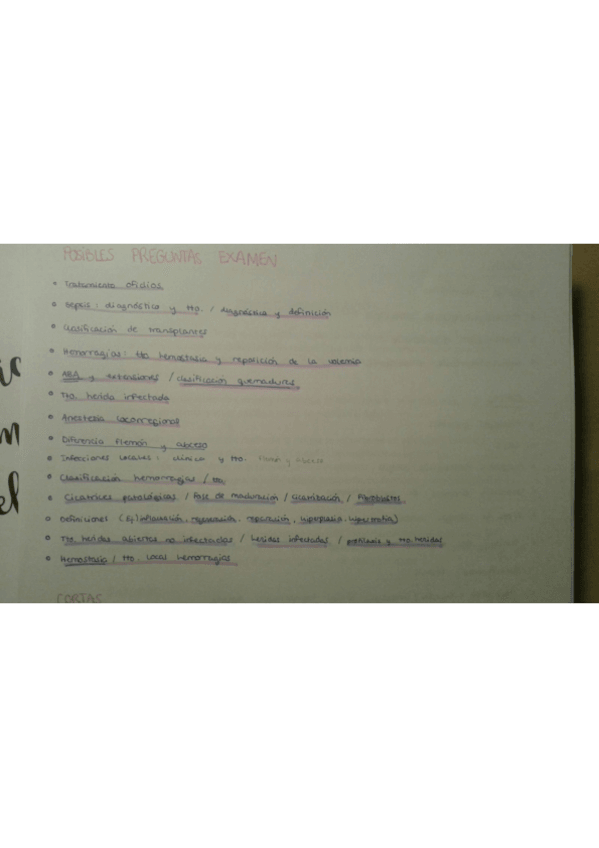 POSIBLES PREGUNTAS EXAMEN
Tratamiento ofidios
Sepsis: diagnóstico y tto. / diagnóstico y definición
Clasificación de transplantes
Hemorragias: tto. hemostasia y reposición de la volemia
y extensiones / clasificación quemaduras
Tto. herida infectada
Anestesia locorregional
Diferencia flemón y abceso
Infecciones locales: clínica y tto. Flemón y Abceso
Clasificación hemorragias / tto.
Cicatrices patológicas / fase de maduración / cicatrización / Fibroblastos
Definiciones (Ej) inflamación, regeneración, reparación, hiperplasia, hipertrofia)
Tto. heridas abiertas no infectadas / heridas infectadas / profilaxis y tto. heridas
Hemostasia / tto. local hemorragias
CORTAS